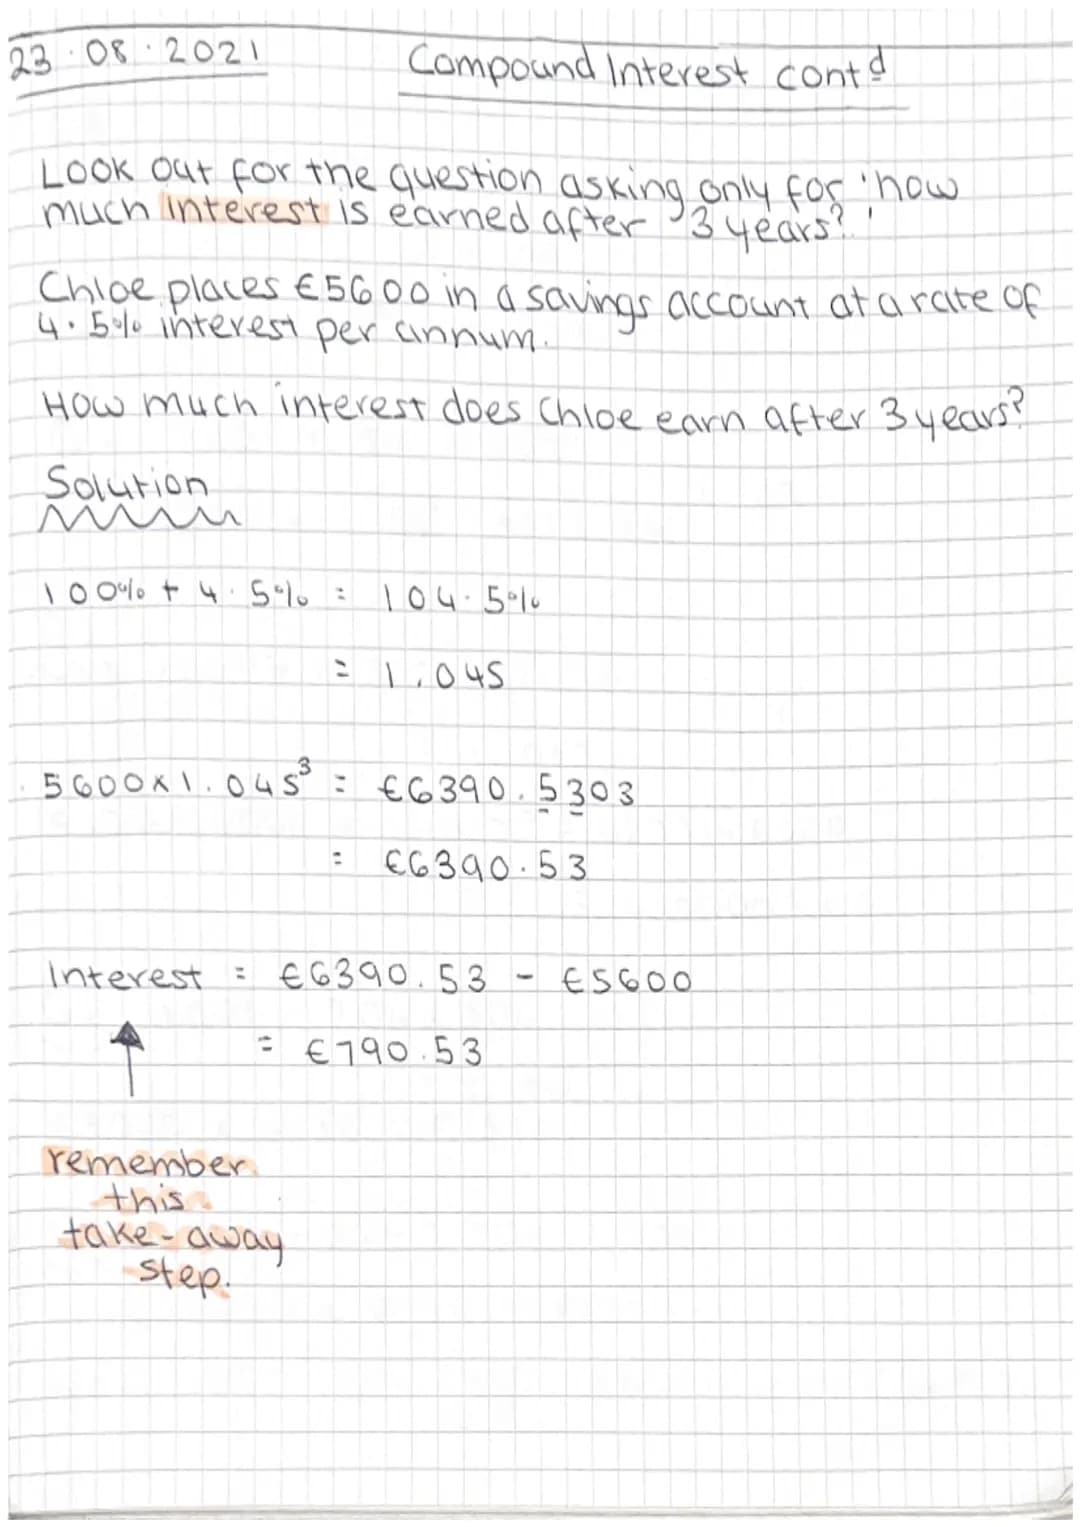 23.08.2021 Compound Interest contd
Look out for the question asking only for 'how
much interest is earned after 3 years?'
Chloe places €5600 in a savings account at a rate of
4.5% interest per annum.
How much interest does Chloe earn after 3 years?
Solution
100% + 4.5% = 104.5%
= 1.045
5600 x 1.045³ = €6390.5303
= €6390.53
Interest = €6390.53 - €5600
= €790.53
remember
this
take-away
step.